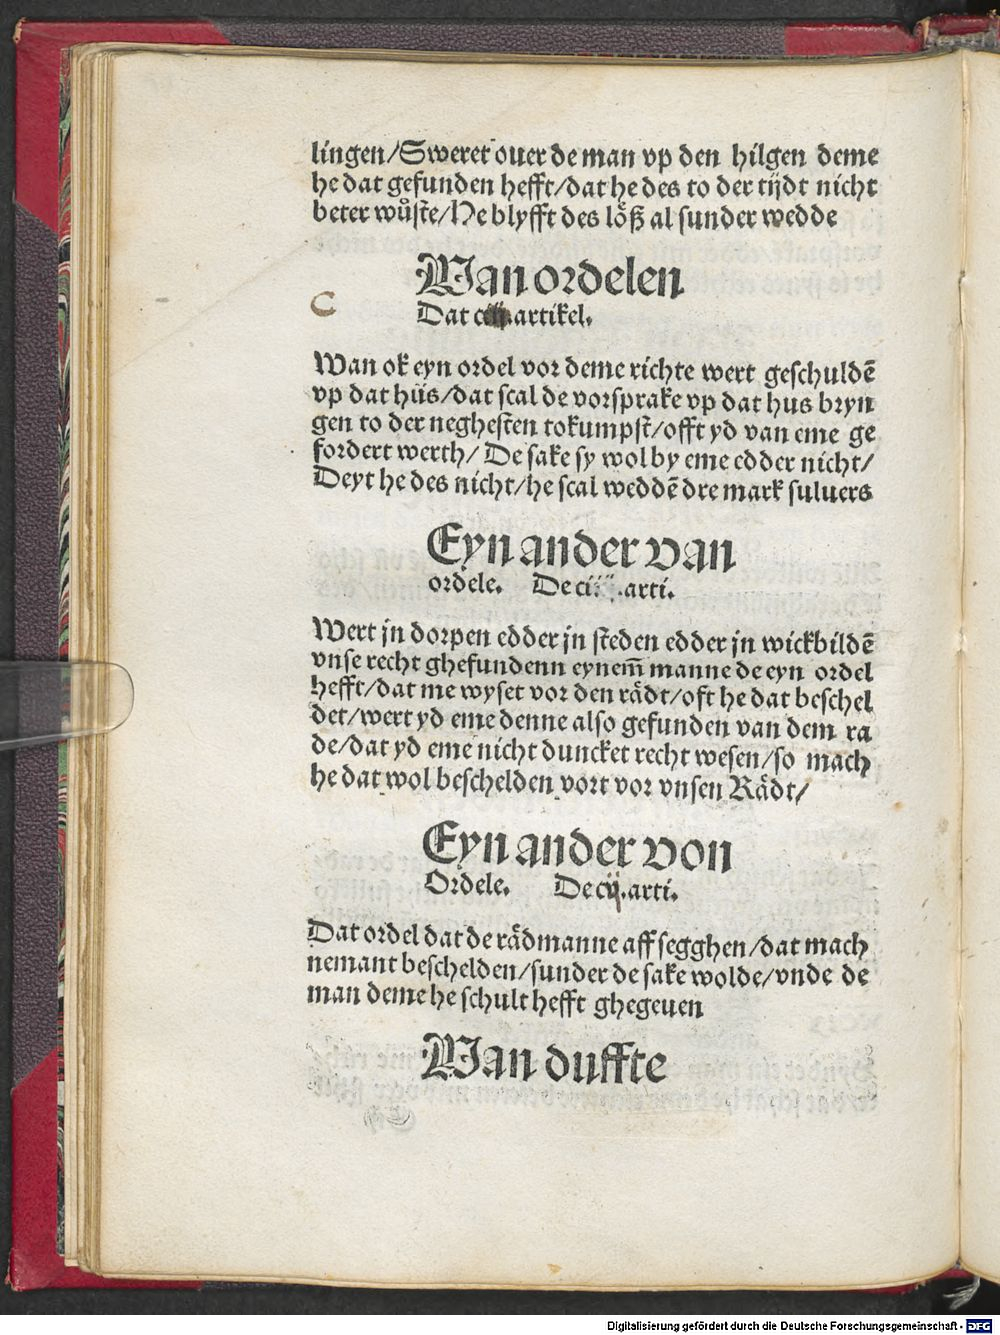 lingen/Sweret ouer de man vp den hilgen deme
he dat gefunden hefft/dat he des to der tijdt nicht
beter wůste/He blyfft des lo̊ß al sunder wedde
Wan ordelen
Dat artikel.
Wan ok eyn ordel vor deme richte wert geschuldē
vp dat hüs/dat scal de vorsprake vp dat hus bryn
gen to der neghesten tokumpst/offt yd van eme ge
fordert werth/ De sake sy wol by eme edder nicht/
Deyt he des nicht/he scal weddē dre mark suluers
Eyn ander van
ordele. De arti.
Wert jn dorpen edder jn steden edder jn wickbildē
vnse recht ghefundenn eynem̄ manne de eyn ordel
hefft/dat me wyset vor den rådt/oft he dat beschel
det/wert yd eme denne also gefunden van dem ra
de/dat yd eme nicht duncket recht wesen/so mach
he dat wol beschelden vort vor vnsen Rådt/
Eyn ander von
Ordele. De cij.arti.
Dat ordel dat de rådmanne aff segghen/dat mach
nemant beschelden/sunder de sake wolde/vnde de
man deme he schult hefft ghegeuen
Wan duffte
Digitalisierung gefördert durch die Deutsche Forschungsgemeinschaft - DFG